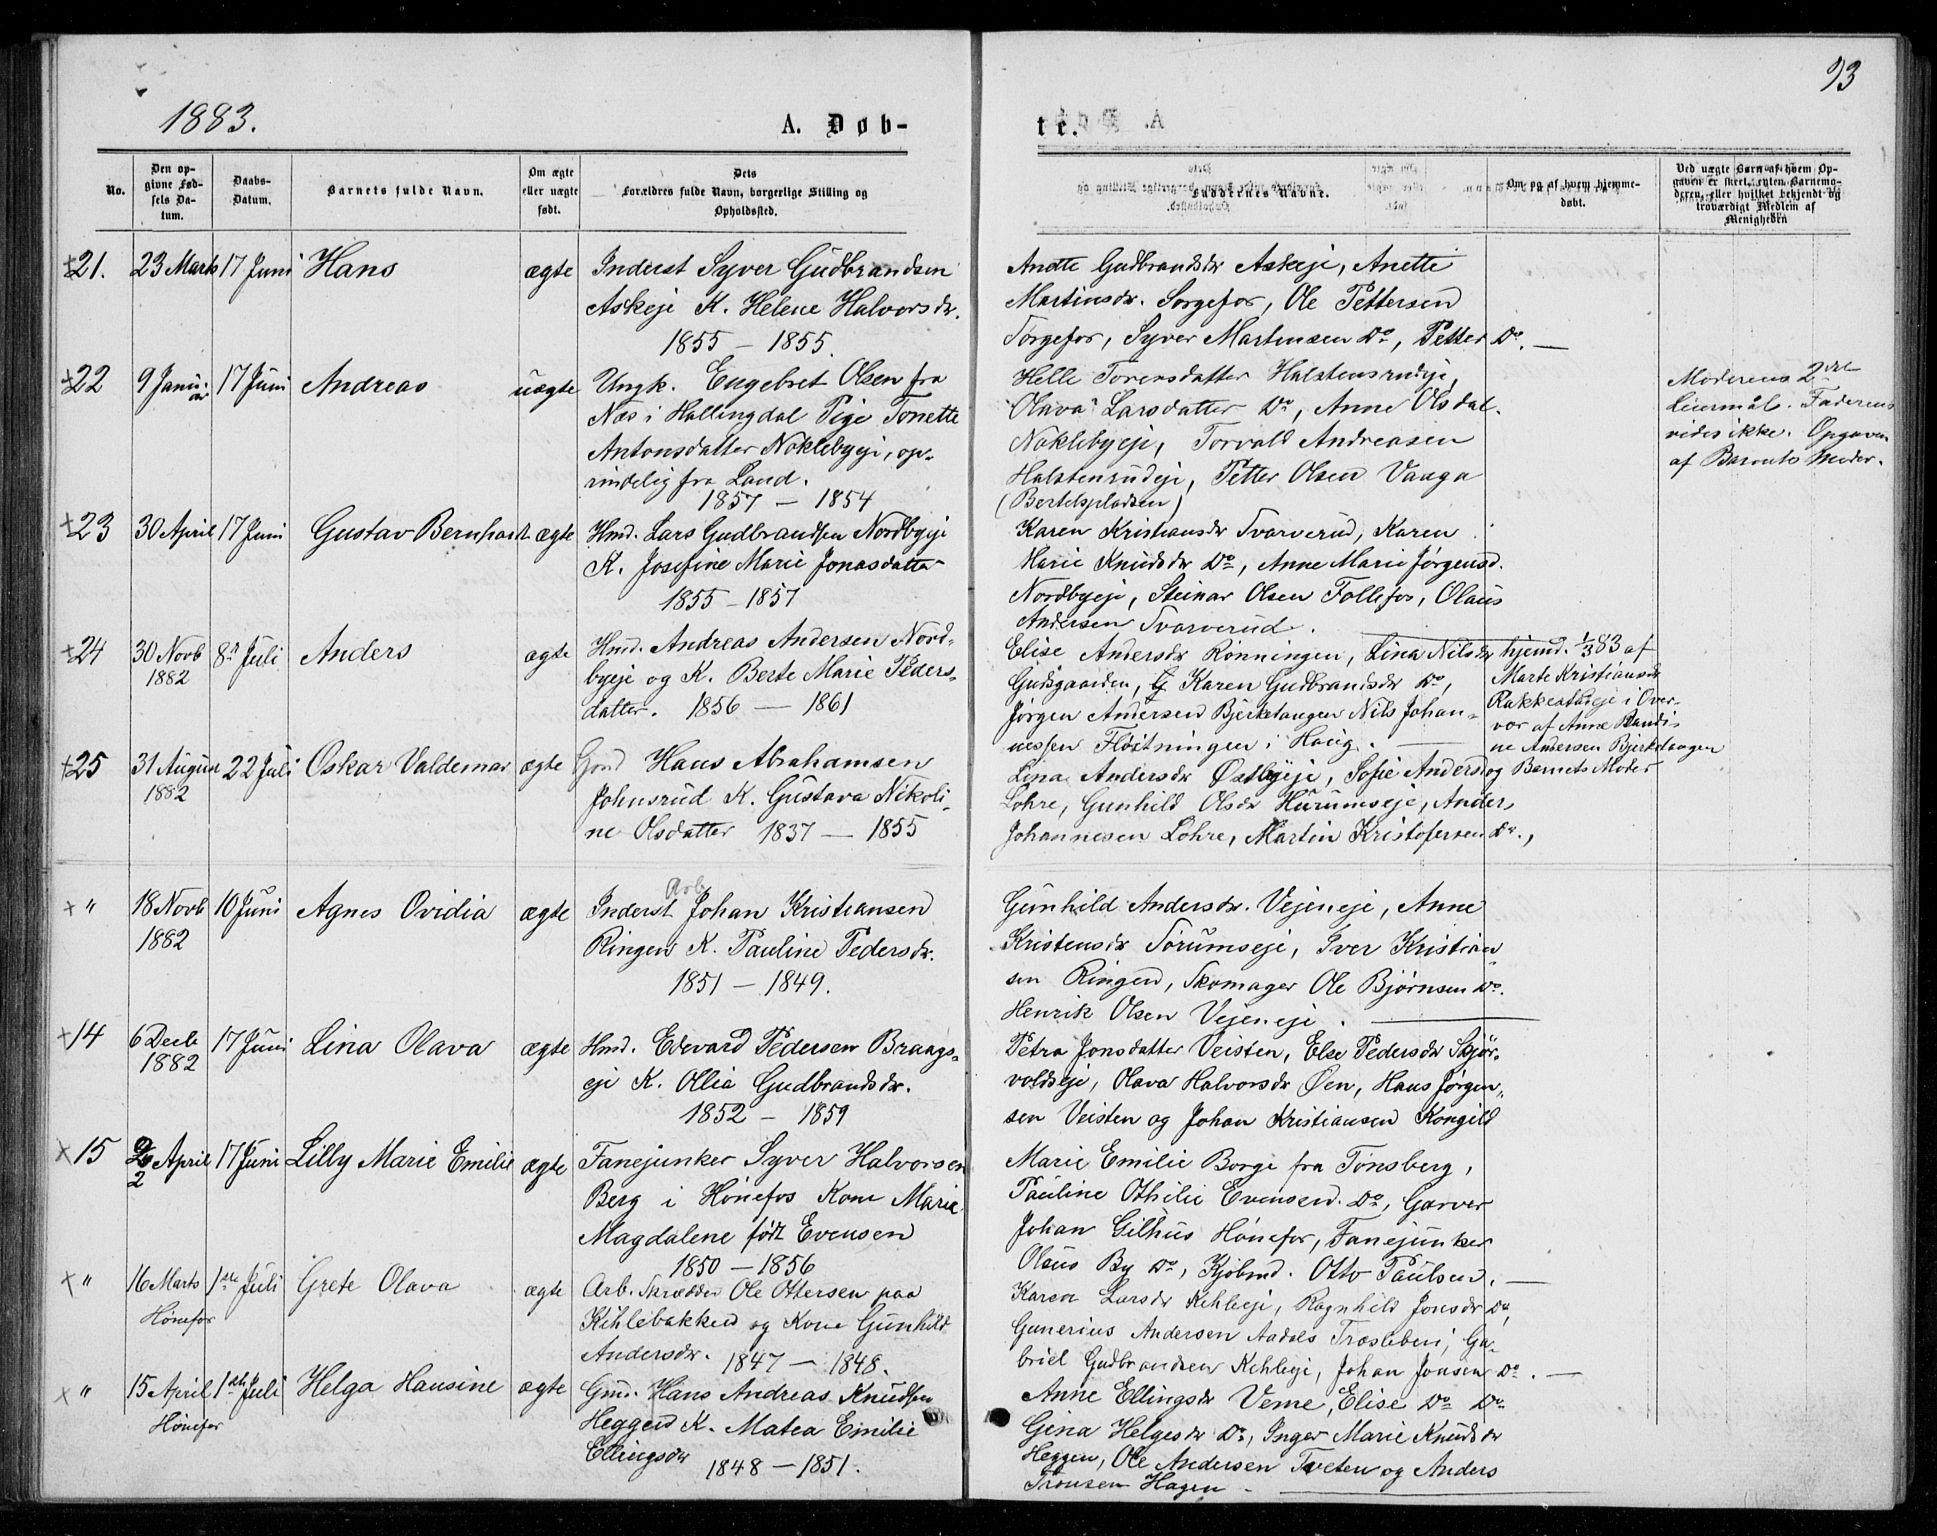 1883.
93
A. Døb-
te.
No.
Den op-
givne Fød-
sels Da-
tum.
Daabs-
Datum.
Barnets fulde Navn.
Om ægte
eller uægte
født.
Dets
Forældres fulde Navn, borgerlige Stilling og
Opholdssted.
Faddernes Navne.
Om og af hvem hjemme-
døbt.
Ved uægte Børn af hvem Op-
gaven er skeet, enten Barnemo-
deren, eller hvilket bekjendt og
troværdigt Medlem af
Menigheden
21. 23 Marts 17 Juni Hans ægte
Inderst Syver Gudbrandsen
Askeje K. Helene Halvorsdr.
1855 - 1855.
Anette Gudbrandsdr Askeje, Anette
Martinsdr. Sorgefos, Ole Pettersen
Sorgefos, Syver Martinsen Do, Petter Do. —
22 9 Januar 17 Juni Andreas uægte
Ungk. Engebret Olsen fra
Næs i Hallingdal Pige Tonette
Antonsdatter Noklebyeje, op-
rindelig fra Land.
1857 - 1854
Helle Torersdatter Halstensrudeje,
Olava Larsdatter Do, Anne Olsdat.
Noklebyeje, Torvald Andreasen
Halstensrudeje, Petter Olsen Vaaga
(Bertelspladsen)
Moderens 2det
Leiermål. Faderens
vides ikke. Opgaven
af Barnets Moder.
23 30 April 17 Juni Gustav Bernhart ægte
Hmd. Lars Gudbrandsen Nordbyeje
K. Josefine Marie Jonasdatter
1855 - 1857
Karen Kristiansdr Tvarverud, Karen
Marie Knudsdr Do, Anne Marie Jørgensd.
Nordbyeje, Steinar Olsen Follefos, Olaus
Andersen Tvarverud.
24 30 Novb 8de Juli Anders ægte
1882
Hmd. Andreas Andersen Nord-
byeje og K. Berte Marie Peders-
datter. 1856 — 1861
Elise Andersdr Rønningen, Lina Nilsdr
Gudsgaarden, G Karen Gudbrandsdr Do,
Jørgen Andersen Bjerketangen Nils Johan-
nessen Fløitningen i Haug. —
hjemd. 1/3 83 af
Marte Kristiansdr
Rakkestadeje i Over-
vær af Anne Randi-
ne Andersen Bjerketangen
og Barnets Moder
25 31 August 22 Juli Oskar Valdemar ægte
1882
Gmd Hans Abrahamsen
Johnsrud K. Gustava Nikoli-
ne Olsdatter 1837 — 1855
Lina Andersdr Østbyeje, Sofie Andersd
Lohre, Gunhild Olsdr Hurumseje, Anders
Johannesen Lohre, Martin Kristofersen Do.,
" 18 Novb 10 Juni Agnes Ovidia ægte
1882
Arb.
Inderst Johan Kristiansen
Ringen K. Pauline Pedersdr.
1851 - 1849.
Gunhild Andersdr. Vejeneje, Anne
Kristensdr Sørumseje, Iver Kristian-
sen Ringen, Skomager Ole Bjørnsen Do.
Henrik Olsen Vejeneje. —
14 6 Decb 17 Juni Lina Olava ægte
1882
Hmd. Edevard Pedersen Braags-
eje K. Ollia Gudbrandsdr.
1852 - 1859
Petra Jonsdatter Veisten, Else Pedersdr Skjør-
voldseje, Olava Halvorsdr Øen, Hans Jørgen-
sen Veisten og Johan Kristiansen Kongild
15 2 April 17 Juni Lilly Marie Emilie ægte
2
Fanejunker Syver Halvorsen
Berg i Hønefos Kone Marie
Magdalene født Evensen
1850 - 1856
Marie Emilie Borge fra Tønsberg,
Pauline Othilie Evensen. Do, Garver
Johan Gilhus Hønefos, Fanejunker
Olaus By Do, Kjøbmd. Otto Paulsen. —
" 16 Marts 1ste Juli Grete Olava ægte
Hønefos
Arb. Skrædder Ole Ottersen paa
Kihlebakken og Kone Gunhild
Andersdr. 1847 - 1848.
Karen Larsdr Kehleje, Ragnhild Jonsdr Do,
Gunerius Andersen Aadals Træsliberi, Ga-
briel Gudbrandsen Kehleje, Johan Jonsen Do. —
" 15 April 1ste Juli Helga Hansine ægte
Hønefos
Gmd. Hans Andreas Knudsen
Heggen K. Matea Emilie
Ellingsdr 1848 - 1851.
Anne Ellingsdr Verne, Elise Do Do.
Gina Helgesdr Do, Inger Marie Knudsdr
Heggen, Ole Andersen Tveten og Anders
Tronsen Hagen -